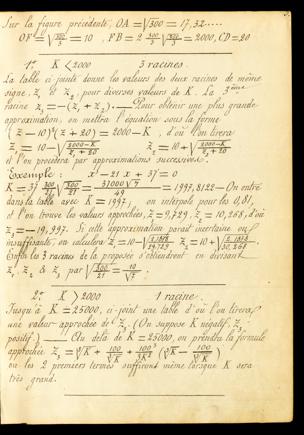 Sur la figure précédente, OA = √300 = 17,32....
OF = √(300/3) = 10, FB = 2 300/3 √(300/3) = 2000, CD = 20
1º K < 2000 3 racines.
La table ci-jointe donne les valeurs des deux racines de même
signe, z₁ et z₂, pour diverses valeurs de K. La 3ème
racine z₃ = -(z₁ + z₂). — Pour obtenir une plus grande
approximation, on mettra l'équation sous la forme
(z - 10)²(z + 20) = 2000 - K, d'où l'on tirera
z₁ = 10 - √((2000-K)/(z₁+20)) z₂ = 10 + √((2000-K)/(z₂+20))
et l'on procédera par approximations successives.
Exemple : x³ - 21 x + 37 = 0
K = 37 300/21 √(300/21) = 37000√7/49 = 1997,8122 — On entre
dans la table avec K = 1997, on interpole pour les 0,81,
et l'on trouve les valeurs approchées, z₁ = 9,729, z₂ = 10,268, d'où
z₃ = -19,997. Si cette approximation parait incertaine ou
insuffisante, on calculera z₁ = 10 - √(2,1878/29,729) z₂ = 10 + √(2,1878/30,268)
Enfin les 3 racines de la proposée s'obtiendront en divisant
z₁, z₂ & z₃ par √(300/21) = 10/√7.
2º K > 2000 1 racine.
Jusqu'à K = 25000, ci-joint une table d'où l'on tirera
une valeur approchée de z₃. (On suppose K négatif, z₃
positif.) — Au delà de K = 25000, on prendra la formule
approchée z₃ = ∛K + 100/∛K + 100³/3K² (∛K - 100/∛K)
ou les 2 premiers termes suffiront même lorsque K sera
très grand.